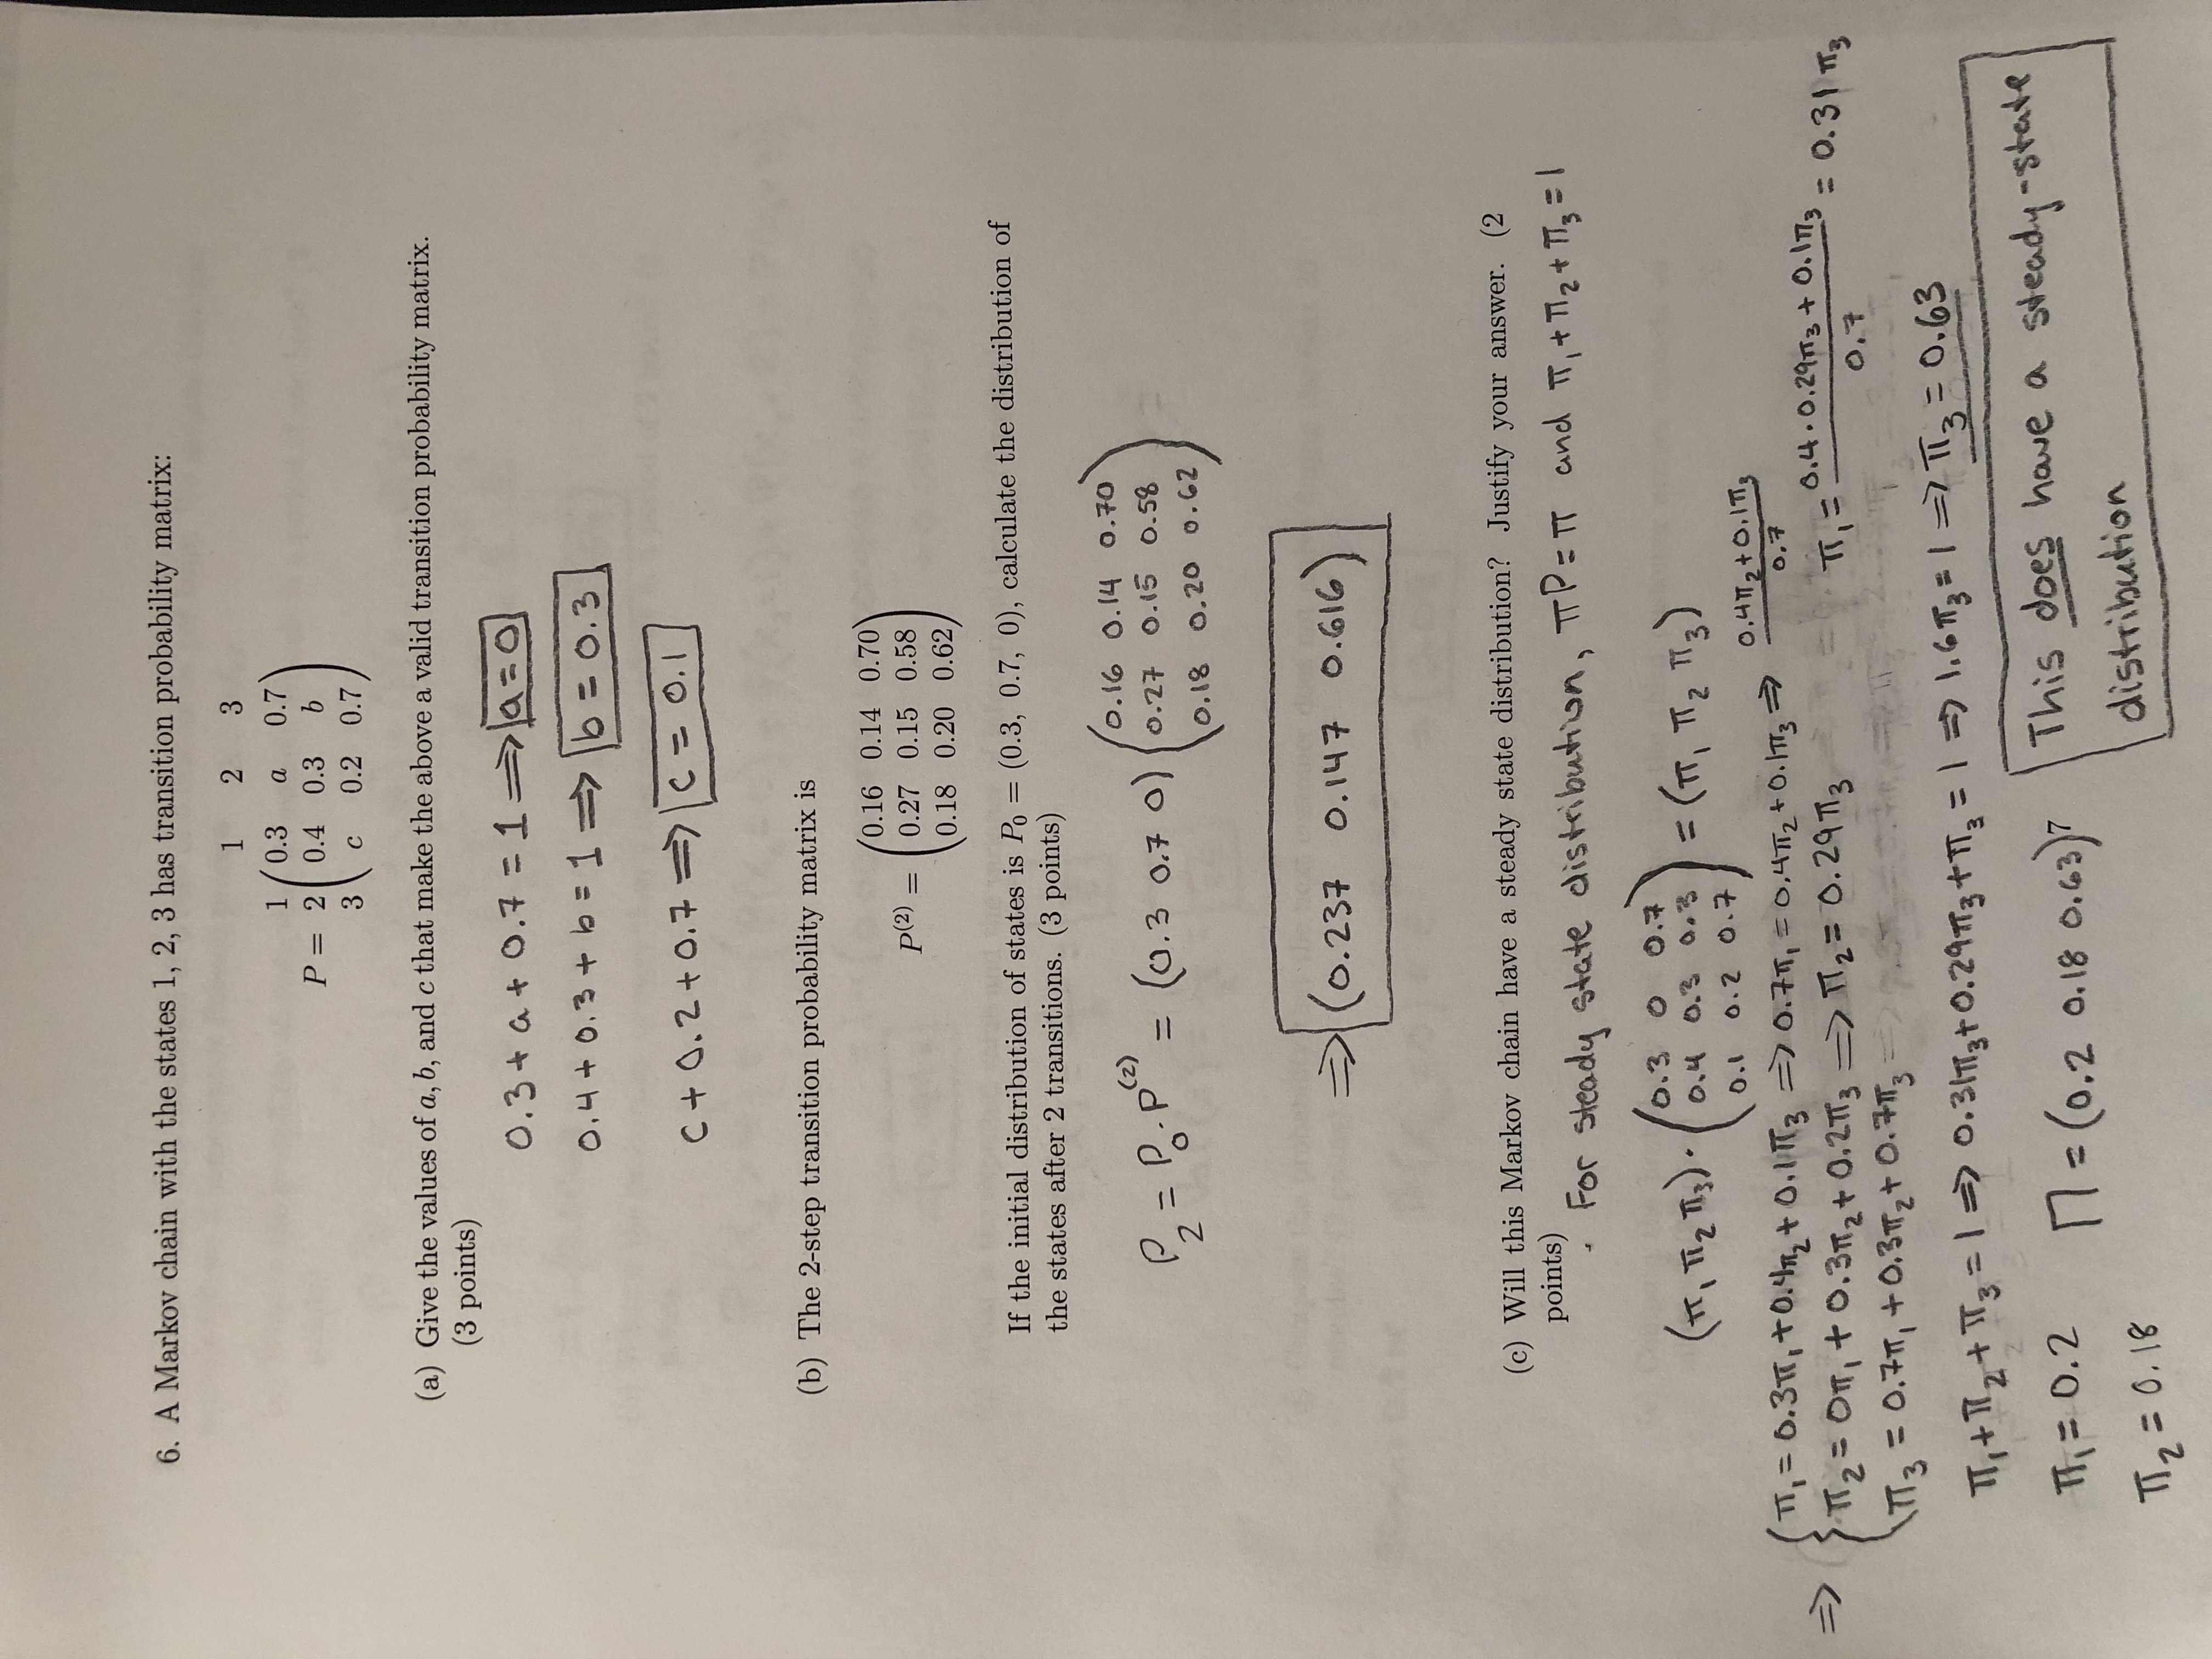 6. A Markov chain with the states 1, 2, 3 has transition probability matrix:
1 2 3
1 0.3 a 0.7
P = 2 0.4 0.3 b
3 c 0.2 0.7
(a) Give the values of a, b, and c that make the above a valid transition probability matrix.
(3 points)
0.3 + a + 0.7 = 1 ⟹ a = 0
0.4 + 0.3 + b = 1 ⟹ b = 0.3
c + 0.2 + 0.7 ⟹ c = 0.1
(b) The 2-step transition probability matrix is
0.16 0.14 0.70
P(2) = 0.27 0.15 0.58
0.18 0.20 0.62
If the initial distribution of states is P₀ = (0.3, 0.7, 0), calculate the distribution of
the states after 2 transitions. (3 points)
0.16 0.14 0.70
P₂ = P₀·P(2) = (0.3 0.7 0) 0.27 0.15 0.58
0.18 0.20 0.62
⟹ (0.237 0.147 0.616)
(c) Will this Markov chain have a steady state distribution? Justify your answer. (2
points)
For steady state distribution, πP = π and π₁ + π₂ + π₃ = 1
0.3 0 0.7
(π₁ π₂ π₃) · 0.4 0.3 0.3 = (π₁ π₂ π₃)
0.1 0.2 0.7
⟹ π₁ = 0.3π₁ + 0.4π₂ + 0.1π₃ ⟹ 0.7π₁ = 0.4π₂ + 0.1π₃ ⟹ (0.4π₂ + 0.1π₃)/0.7
π₂ = 0π₁ + 0.3π₂ + 0.2π₃ ⟹ π₂ = 0.29π₃ π₁ = (0.4 · 0.29π₃ + 0.1π₃)/0.7 = 0.31π₃
π₃ = 0.7π₁ + 0.3π₂ + 0.7π₃
π₁ + π₂ + π₃ = 1 ⟹ 0.31π₃ + 0.29π₃ + π₃ = 1 ⟹ 1.6π₃ = 1 ⟹ π₃ = 0.63
π₁ = 0.2 Π = (0.2 0.18 0.63) 7
π₂ = 0.18
This does have a steady-state
distribution